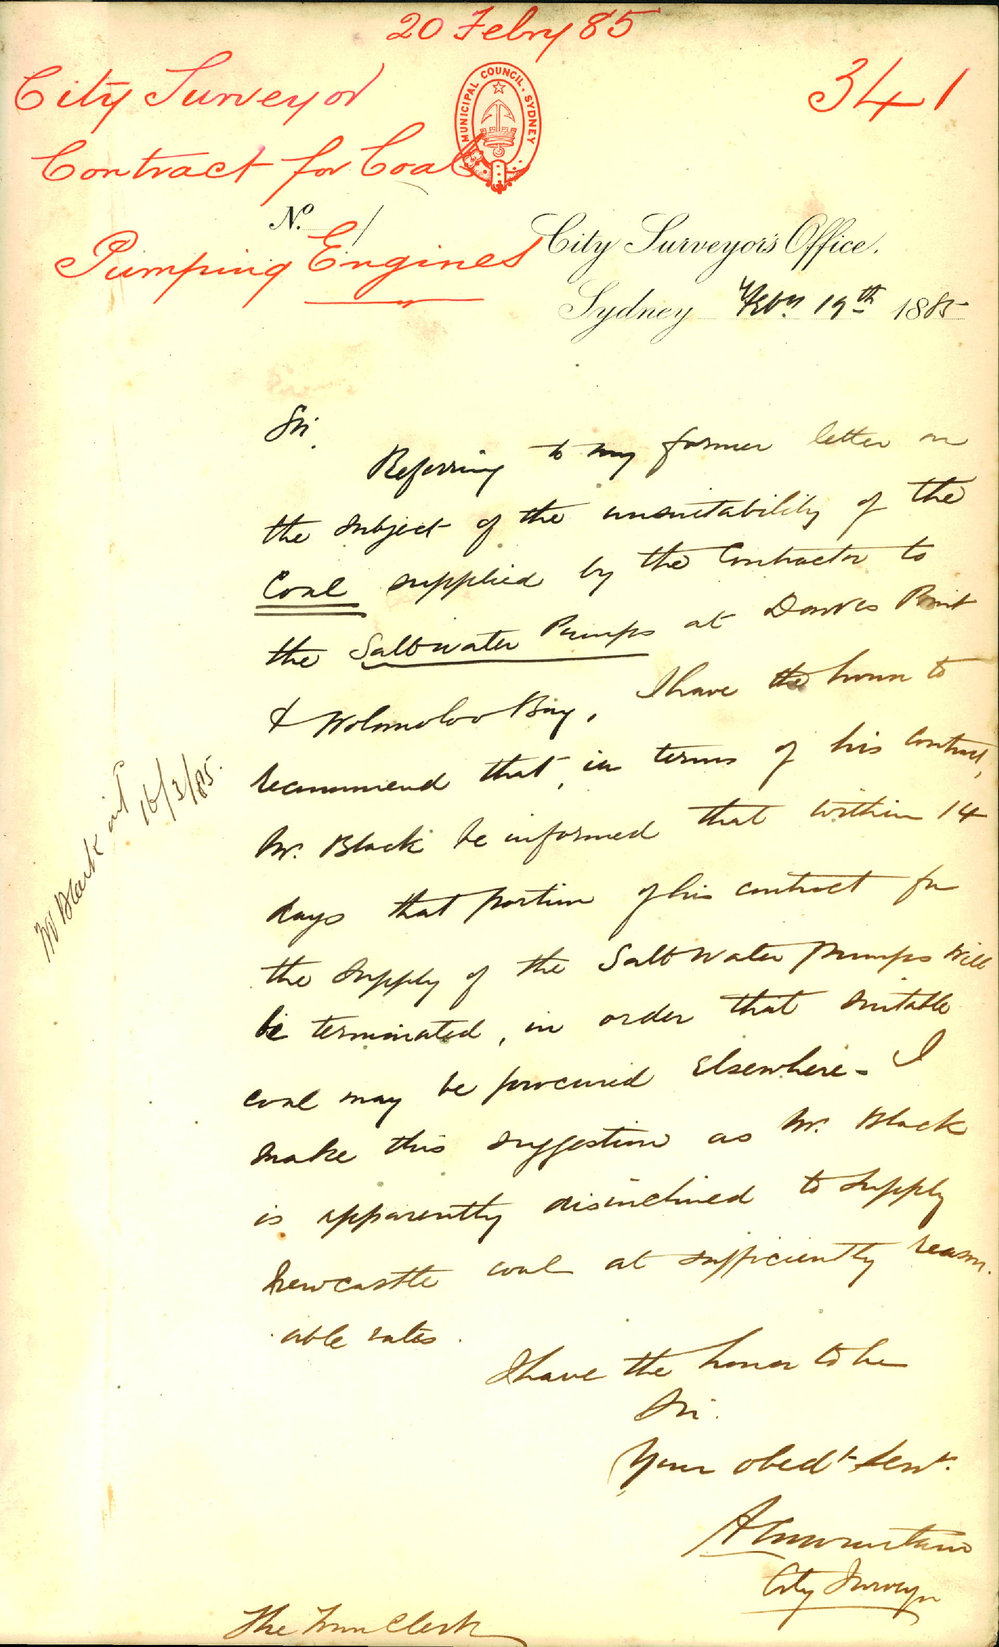 20 Febry 85
City Surveyor
341
MUNICIPAL COUNCIL. SYDNEY
Contract for Coal
No. 1
Pumping Engines
City Surveyor's Office.
Sydney Feby 19th 1885
Sir.
Referring to my former letter on
the subject of the unsuitability of the
Coal supplied by the Contractor to
the Saltwater Pumps at Dawes Point
& Wolomoloo Bay, I have the honor to
recommend that, in terms of his contract,
Mr. Black be informed that within 14
days that portion of his contract for
the supply of the Salt Water pumps will
be terminated, in order that suitable
coal may be procured elsewhere - I
make this suggestion as Mr. Black
is apparently disinclined to supply
Newcastle coal at sufficiently reason-
able rates.
I have the honor to be
Sir.
Your obedt Servt.
City Surveyor
The Town Clerk
Mr Black
16/3/85.